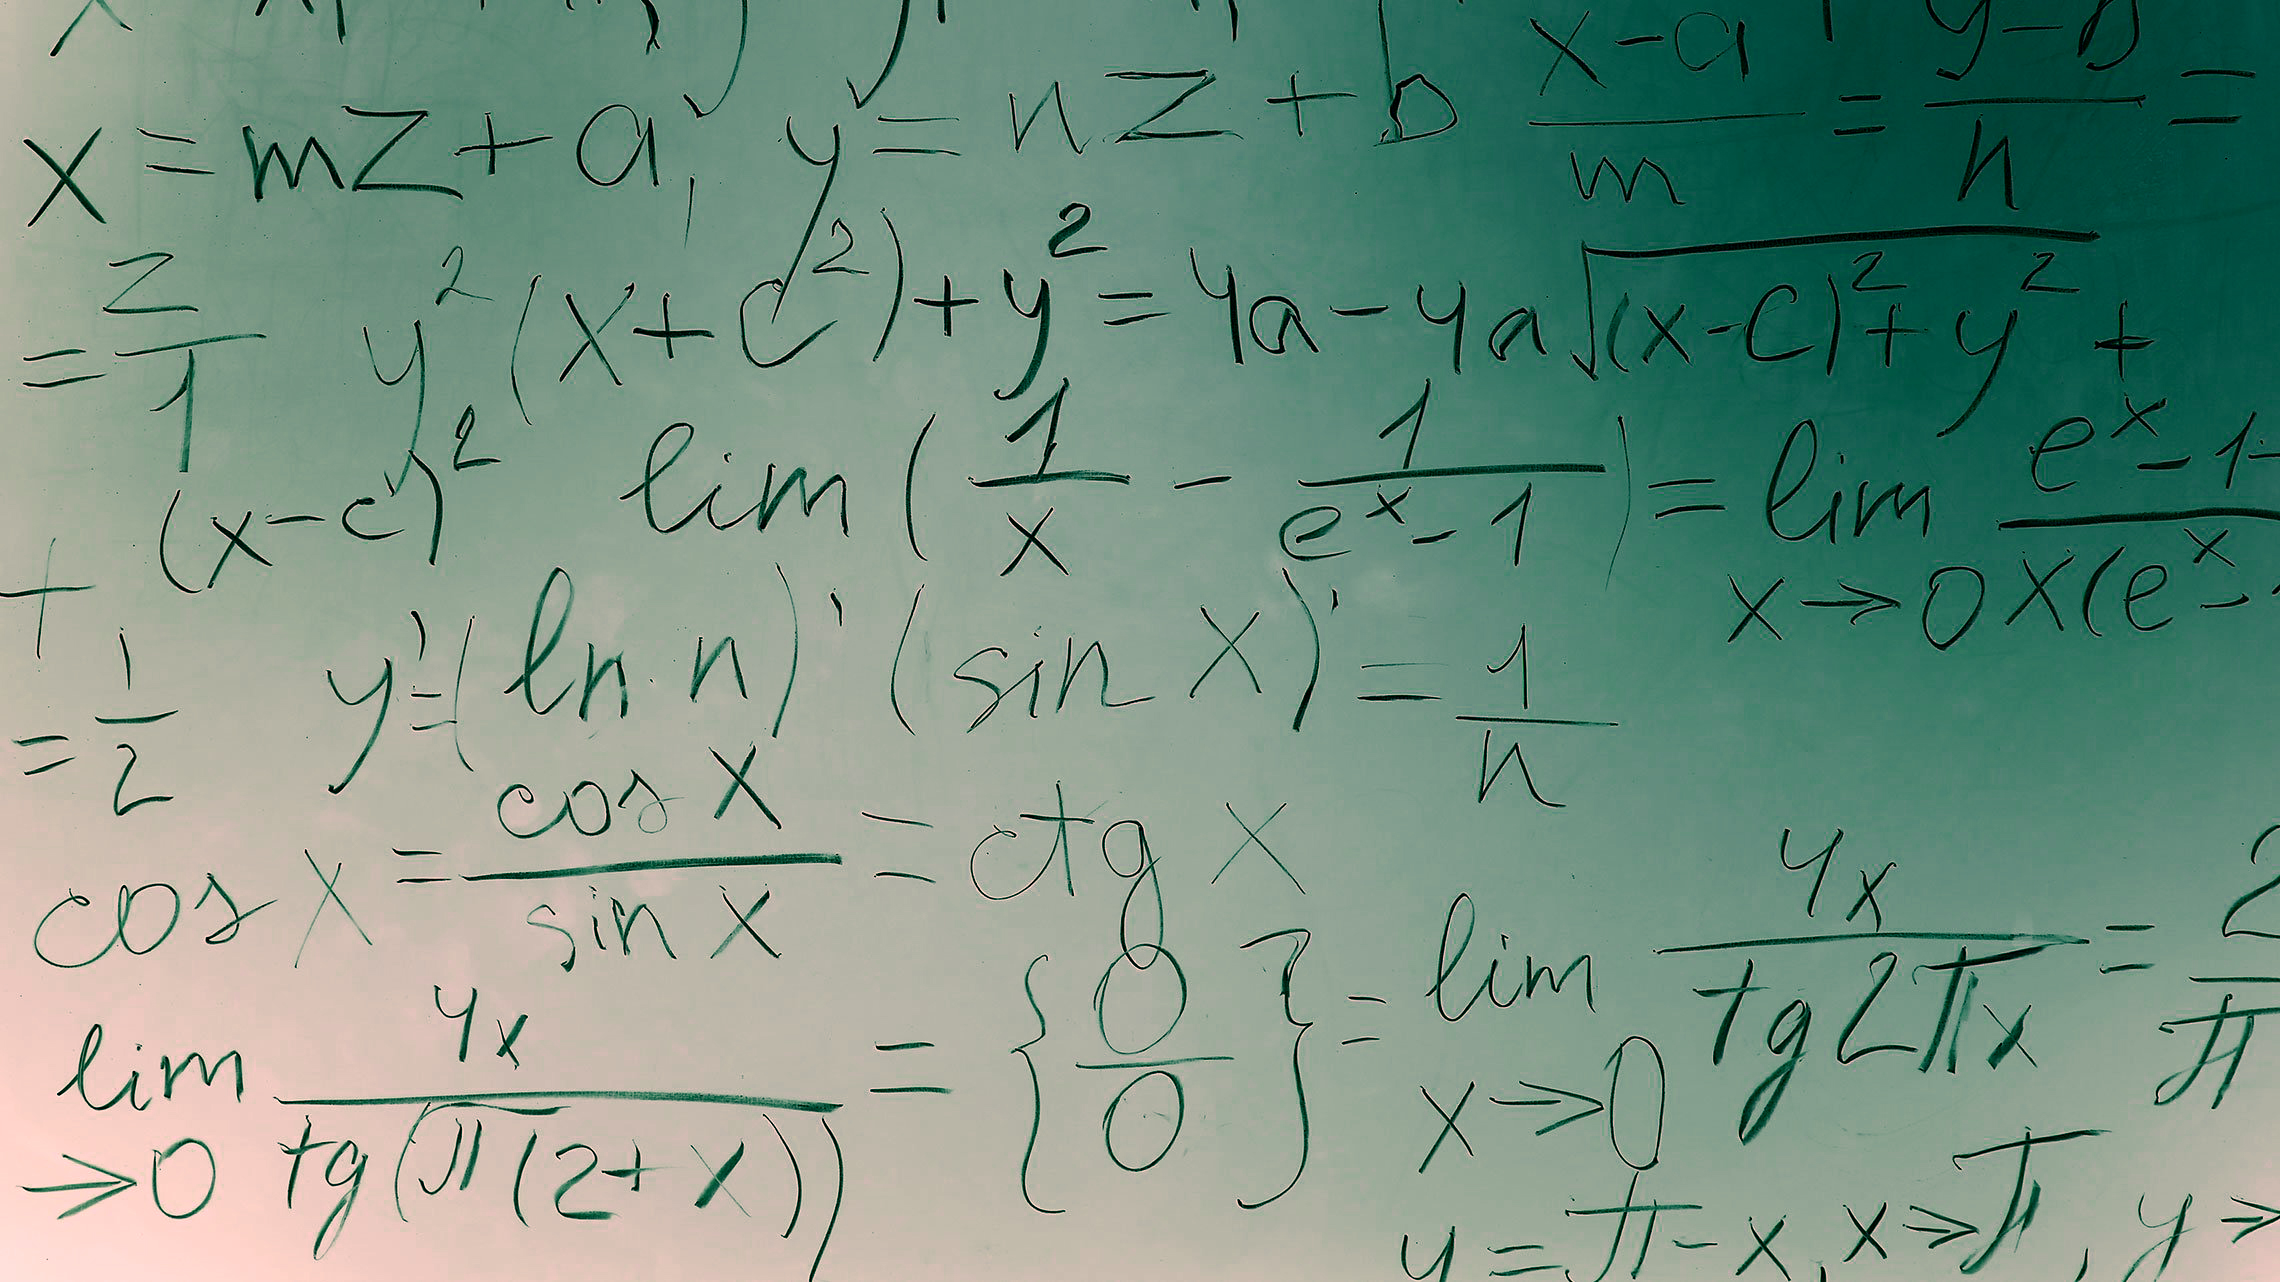 x = mz + a, y = nz + b (x-a)/m = (y-b)/n =
= z/1 y²(x+c²)+y² = 4a-4a√((x-c)²+y²) +
+ (x-c)² lim (1/x - 1/(e^x-1)) = lim x→0 (e^x-1-)/(x(e^x-
= 1/2 y'=(ln n)' (sin x)' = 1/n
cos x = cos x/sin x = ctg x
lim →0 4x/tg(π(2+x)) = {0/0} = lim x→0 4x/tg2πx = 2/π
y=π-x, x→π, y→